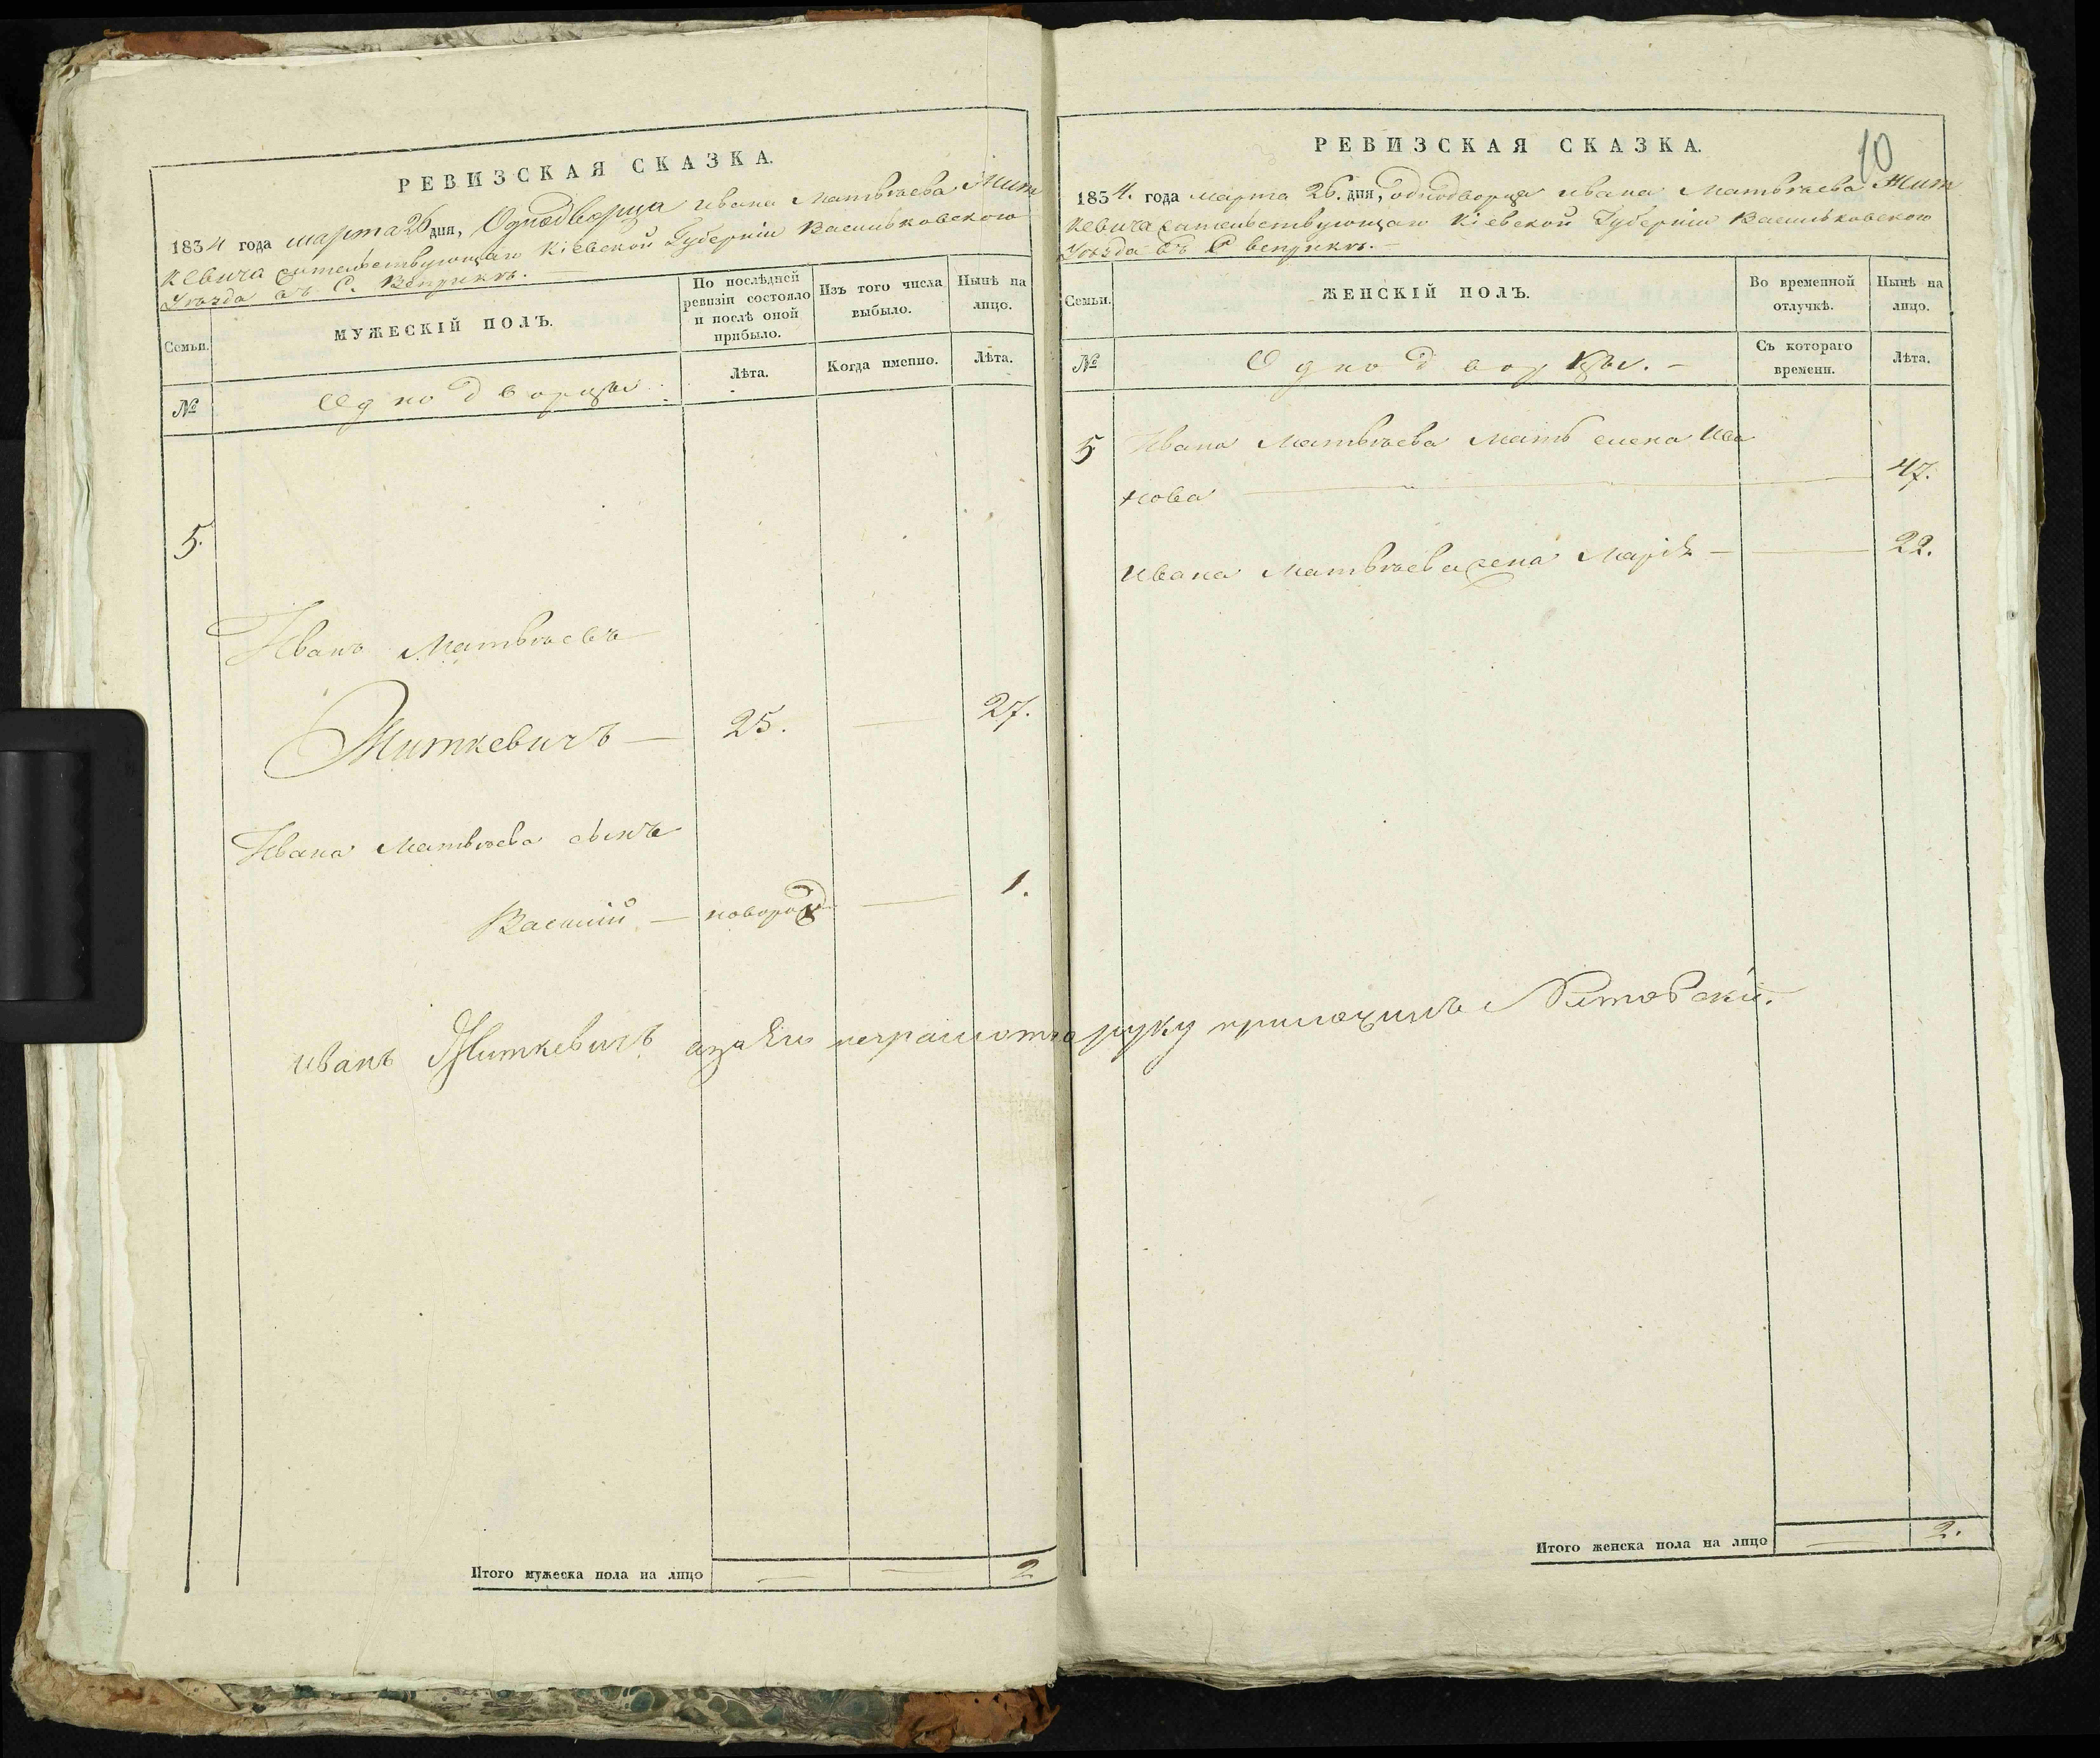 РЕВИЗСКАЯ СКАЗКА.
1834 года марта 26 дня, Однодворца Ивана Матвѣева Жит
кевича жительствующаго Кіевской Губерніи Васильковскаго
Уѣзда въ С. Веприкѣ.
Семьи.
МУЖЕСКІЙ ПОЛЪ.
По послѣдней
ревизіи состояло
и послѣ оной
прибыло.
Изъ того числа
выбыло.
Нынѣ на
лицо.
№
Однодворцы
Лѣта.
Когда именно.
Лѣта.
5.
Иванъ Матвѣевъ
Житкевичъ — 25. — 27.
Ивана Матвѣева сынъ
Василій — новорожд — 1.
Иванъ Житкевичъ а за его неграмотно руку приложилъ
Итого мужеска пола на лицо — — 2
РЕВИЗСКАЯ СКАЗКА.
10
1834. года марта 26. дня, однодворца Ивана Матвѣева Жит
кевича жительствующаго Кіевской Губерніи Васильковскаго
Уѣзда въ С Веприкѣ. —
Семьи.
ЖЕНСКІЙ ПОЛЪ.
Во временной
отлучкѣ.
Нынѣ на
лицо.
№
Однодворцы. —
Съ котораго
времени.
Лѣта.
5 Ивана Матвѣева мать елена Ива
нова — 47.
Ивана Матвѣева жена Марія — — 22.
Итого женска пола на лицо — 2.